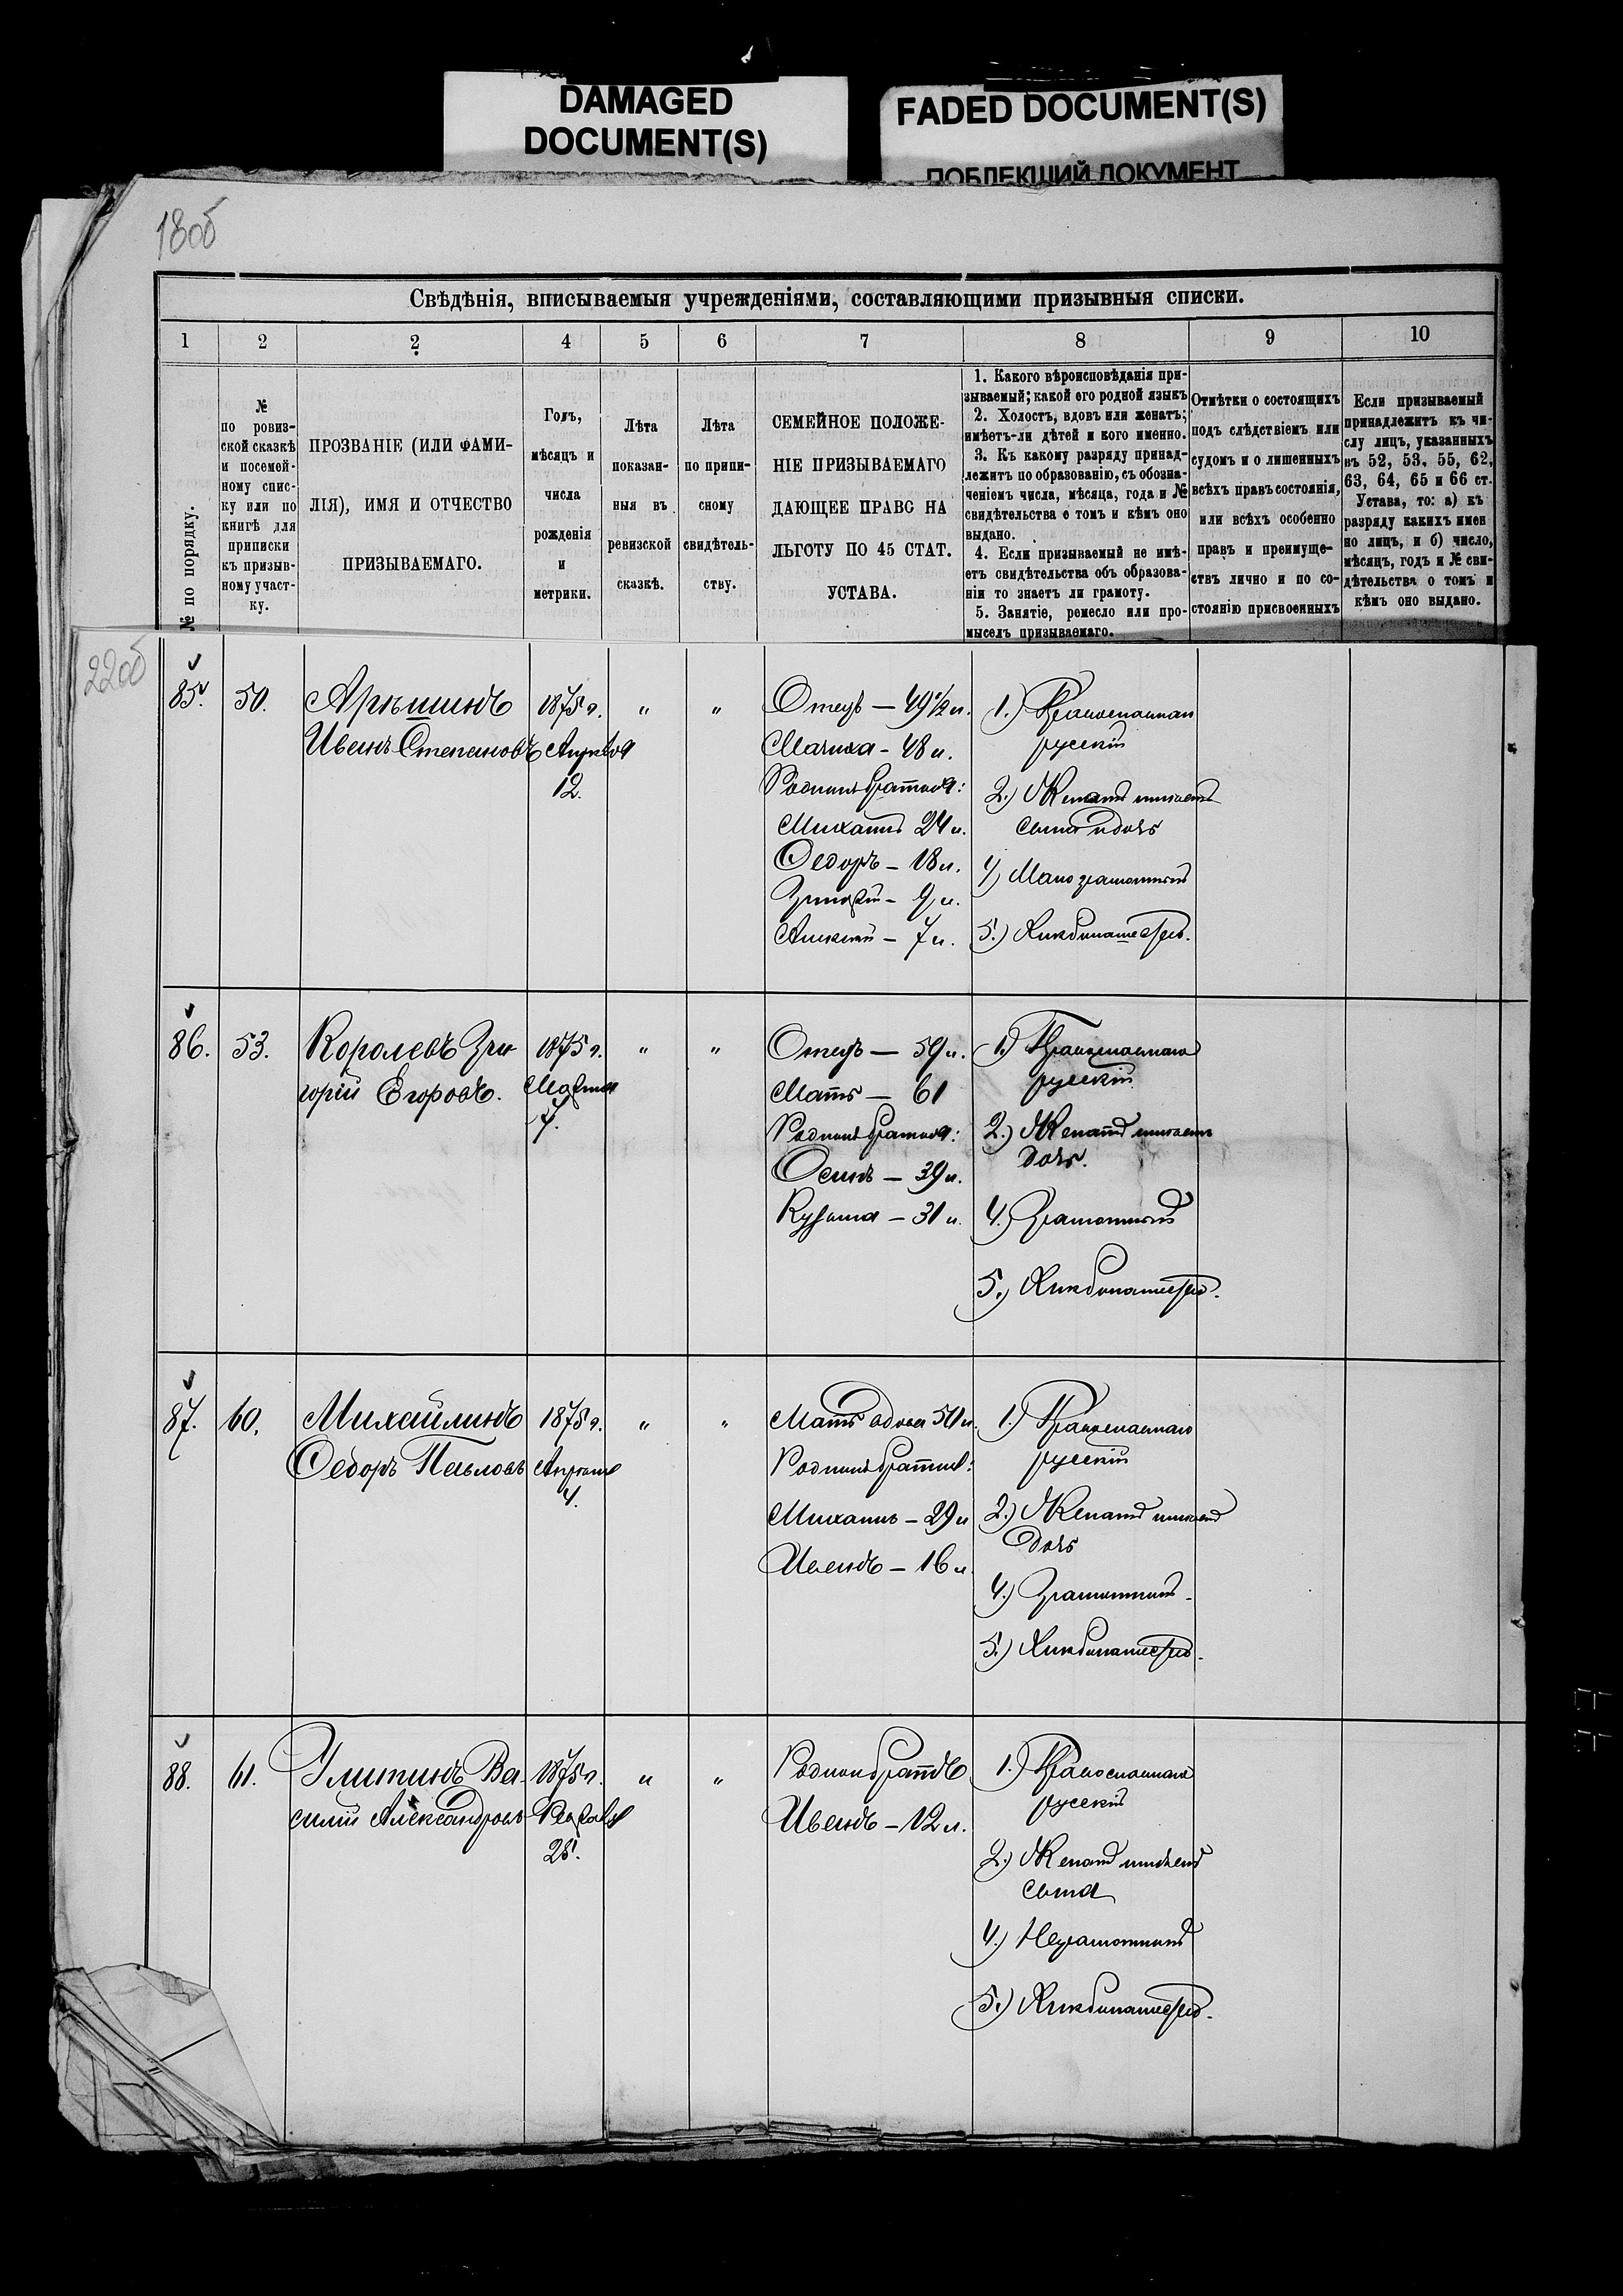 DAMAGED
DOCUMENT(S)
FADED DOCUMENT(S)
ПОБЛЕКШИЙ ДОКУМЕНТ
18об
Свѣдѣнія, вписываемыя учрежденіями, составляющими призывныя списки.
1 2 2 4 5 6 7 8 9 10
№ по порядку.
№
по ровиз-
ской сказкѣ
и посемей-
ному спис-
ку или по
книгѣ для
приписки
къ призыв-
ному участ-
ку.
ПРОЗВАНІЕ (ИЛИ ФАМИ-
ЛІЯ), ИМЯ И ОТЧЕСТВО
ПРИЗЫВАЕМАГО.
Годъ,
мѣсяцъ и
числа
рожденія
и
метрики.
Лѣта
показан-
ныя въ
ревизской
сказкѣ.
Лѣта
по припи-
сному
свидѣтель-
ству.
СЕМЕЙНОЕ ПОЛОЖЕ-
НІЕ ПРИЗЫВАЕМАГО
ДАЮЩЕЕ ПРАВО НА
ЛЬГОТУ ПО 45 СТАТ.
УСТАВА.
1. Какого вѣроисповѣданія при-
зываемый; какой его родной языкъ
2. Холостъ, вдовъ или женатъ;
имѣетъ-ли дѣтей и кого именно.
3. Къ какому разряду принад-
лежитъ по образованію, съ обозна-
ченіемъ числа, мѣсяца, года и №
свидѣтельства о томъ и кѣмъ оно
выдано.
4. Если призываемый не имѣ-
етъ свидѣтельства объ образова-
ніи то знаетъ ли грамоту.
5. Занятіе, ремесло или про-
мыселъ призываемаго.
Отмѣтки о состоящихъ
подъ слѣдствіемъ или
судомъ и о лишенныхъ
всѣхъ правъ состоянія,
или всѣхъ особенно
правъ и преимуще-
ствъ лично и по со-
стоянію присвоенныхъ
Если призываемый
принадлежитъ къ чи-
слу лицъ, указанныхъ
въ 52, 53, 55, 62,
63, 64, 65 и 66 ст.
Устава, то: а) къ
разряду какихъ имен
но лицъ, и б) число,
мѣсяцъ, годъ и № сви-
дѣтельства о томъ и
кѣмъ оно выдано.
22об
85. 50.
Иванъ Степановъ
1875 г.
Апрѣля
12.
" "
Отецъ — 49 1/2 л.
Мачиха - 48 л.
Родныя братья:
Михаилъ 24 л.
Федоръ — 18 л.
Алексѣй — 7 л.
1.) Православнаго
русскій
2.) Женатъ имѣетъ
сына и дочь
4) Малограмотный
5.) Хлѣбопашество.
86. 53.
Королевъ Гри-
горій Егоровъ.
1875 г.
Марта
7.
" "
Отецъ — 59 л.
Мать — 61
Родныя братья:
Осипъ — 39 л.
Кузьма — 31 л.
1.) Православнаго
русскій
2.) Женатъ имѣетъ
дочь.
4.) Грамотный
5.) Хлѣбопашество.
87. 60.
Михайлинъ
Федоръ Павловъ
1875 г.
Апрѣля
4.
" "
Мать вдова 50 л.
Родныя братья:
Михаилъ — 29 л
Иванъ — 16 л
1.) Православнаго
русскій
2.) Женатъ имѣетъ
дочь
4.) Грамотный.
5.) Хлѣбопашество.
88. 61.
Улитинъ Ва-
силій Александровъ
1875 г.
Февраля
25.
" "
Родной братъ
Иванъ — 12 л.
1.) Православнаго
русскій
2.) Женатъ имѣетъ
сына
4.) Неграмотный
5.) Хлѣбопашество.